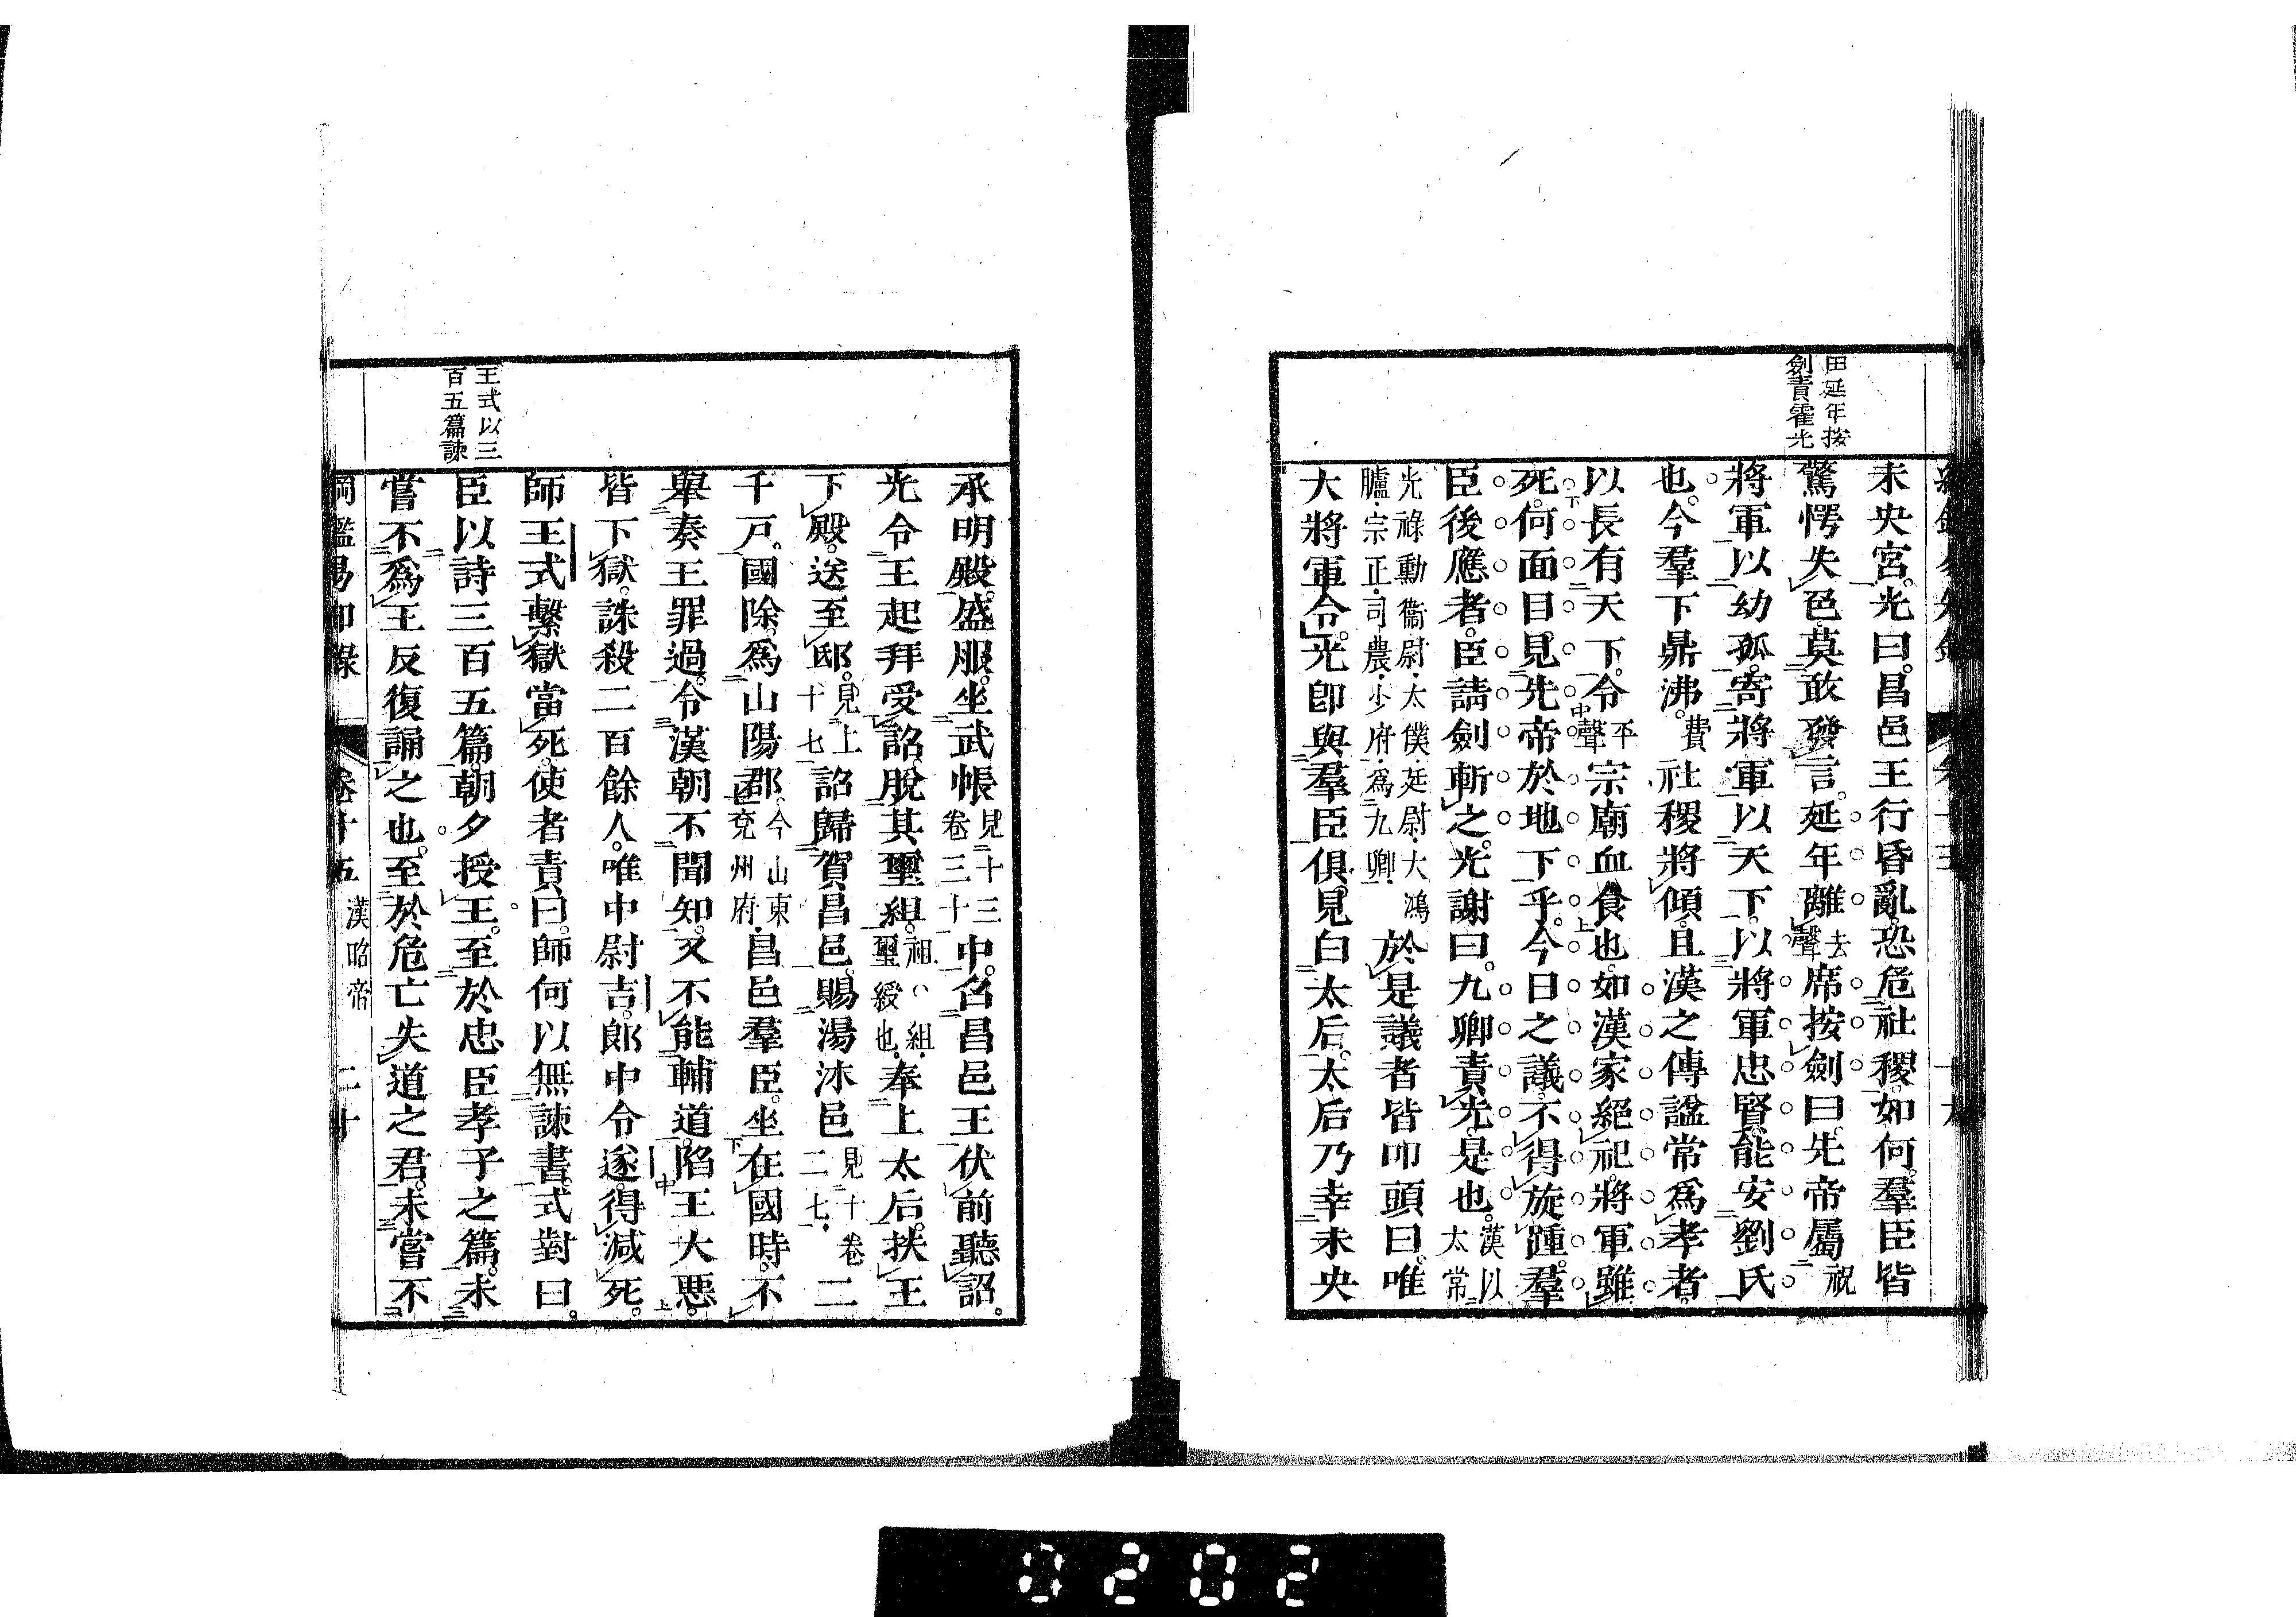 田延年按
劍責霍光
未央宮。光曰。昌邑王行昏亂。恐危社稷。如何。羣臣皆
驚愕失色。莫敢發言。延年離去聲席按劍曰。先帝屬祝
將軍以幼孤。寄將軍以天下。以將軍忠賢。能安劉氏
也。今羣下鼎沸。費社稷將傾。且漢之傳諡常爲孝者。
以長有天下。令平聲宗廟血食也。如漢家絕祀。將軍雖
死。何面目見先帝於地下乎。今日之議。不得旋踵。羣
臣後應者。臣請劍斬之。光謝曰。九卿責光。是也。漢以太常
光祿勳衞尉太僕廷尉大鴻臚宗正司農少府爲九卿於是議者皆叩頭曰。唯
大將軍令。光卽與羣臣俱。見白太后。太后乃幸未央
承明殿。盛服。坐武帳見十三卷三十中。召昌邑王伏前聽詔。
光令王起拜受詔。脫其璽組。組璽綬也奉上太后。扶王
下殿。送至邸。見上十七詔歸賀昌邑。賜湯沐邑見十卷二七二
千戸。國除。爲山陽郡。今山東兗州府昌邑羣臣。坐在國時。不
舉奏王罪過。令漢朝不聞知。又不能輔道。陷王大惡。
皆下獄。誅殺二百餘人。唯中尉吉。郎中令遂。得減死。
師王式繫獄當死。使者責曰。師何以無諫書。式對曰。
王式以三
百五篇諫
臣以詩三百五篇。朝夕授王。至於忠臣孝子之篇。未
嘗不爲王反復誦之也。至於危亡失道之君。未嘗不
卷十五 漢昭帝 二十
0202